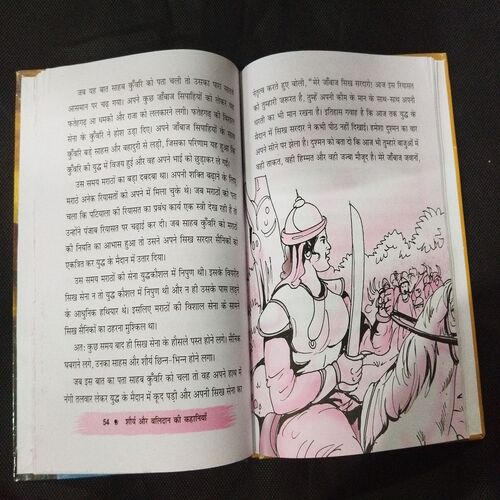 जब यह बात साहब कुँवरि को पता चली तो उसका पारा सातवें
आसमान पर चढ़ गया। अपने कुछ जाँबाज सिपाहियों को लेकर वह
फतेहगढ़ आ धमकी और राजा को ललकारने लगी। फतेहगढ़ की विशाल
सेना के कुँवरि ने होश उड़ा दिए। अपने जाँबाज सिपाहियों के साथ कुँवरि
बड़े साहस और बहादुरी से लड़ी, जिसका परिणाम यह हुआ कि साहब
कुँवरि को युद्ध में विजय हुई और वह अपने भाई को छुड़ाकर ले गई।
उस समय मराठों का बड़ा दबदबा था। अपनी शक्ति बढ़ाने के लिए
मराठे अनेक रियासतों को अपने में मिला चुके थे। जब मराठों को पता
चला कि पटियाला की रियासत का प्रबंध कार्य एक स्त्री देख रही है तो
उन्होंने पंजाब रियासत पर चढ़ाई कर दी। जब साहब कुँवरि को मराठों
की नियति का आभास हुआ तो उसने अपने सिख सरदार सैनिकों को
एकत्रित कर युद्ध के मैदान में उतार दिया।
उस समय मराठों की सेना युद्धकौशल में निपुण थी। इसके विपरीत
सिख सेना न तो युद्ध कौशल में निपुण थी और न ही उसके पास लड़ने
के आधुनिक हथियार थे। इसलिए मराठों की विशाल सेना के सामने
सिख सैनिकों का ठहरना मुश्किल था।
अतः कुछ समय बाद ही सिख सेना के हौसले पस्त होने लगे। सैनिक
घबराने लगे, उनका साहस और शौर्य छिन्न-भिन्न होने लगा।
जब इस बात का पता साहब कुँवरि को चला तो वह अपने हाथ में
नंगी तलवार लेकर युद्ध के मैदान में कूद पड़ी और अपनी सिख सेना का
54 शौर्य और बलिदान की कहानियाँ
नेतृत्व करते हुए बोली, "मेरे जाँबाज सिख सरदारो! आज इस रियासत
को तुम्हारी जरूरत है, तुम्हें अपनी कौम के मान के साथ-साथ अपनी
धरती का भी मान रखना है। इतिहास गवाह है कि आज तक युद्ध के
मैदान में सिख सरदार ने कभी पीठ नहीं दिखाई। हमेशा दुश्मन का वार
अपने सीने पर झेला है। दुश्मन को बता दो कि आज भी तुम्हारे बाजुओं में
वही ताकत, वही हिम्मत और वही जज्बा मौजूद है। मेरे जाँबाज जवानों,